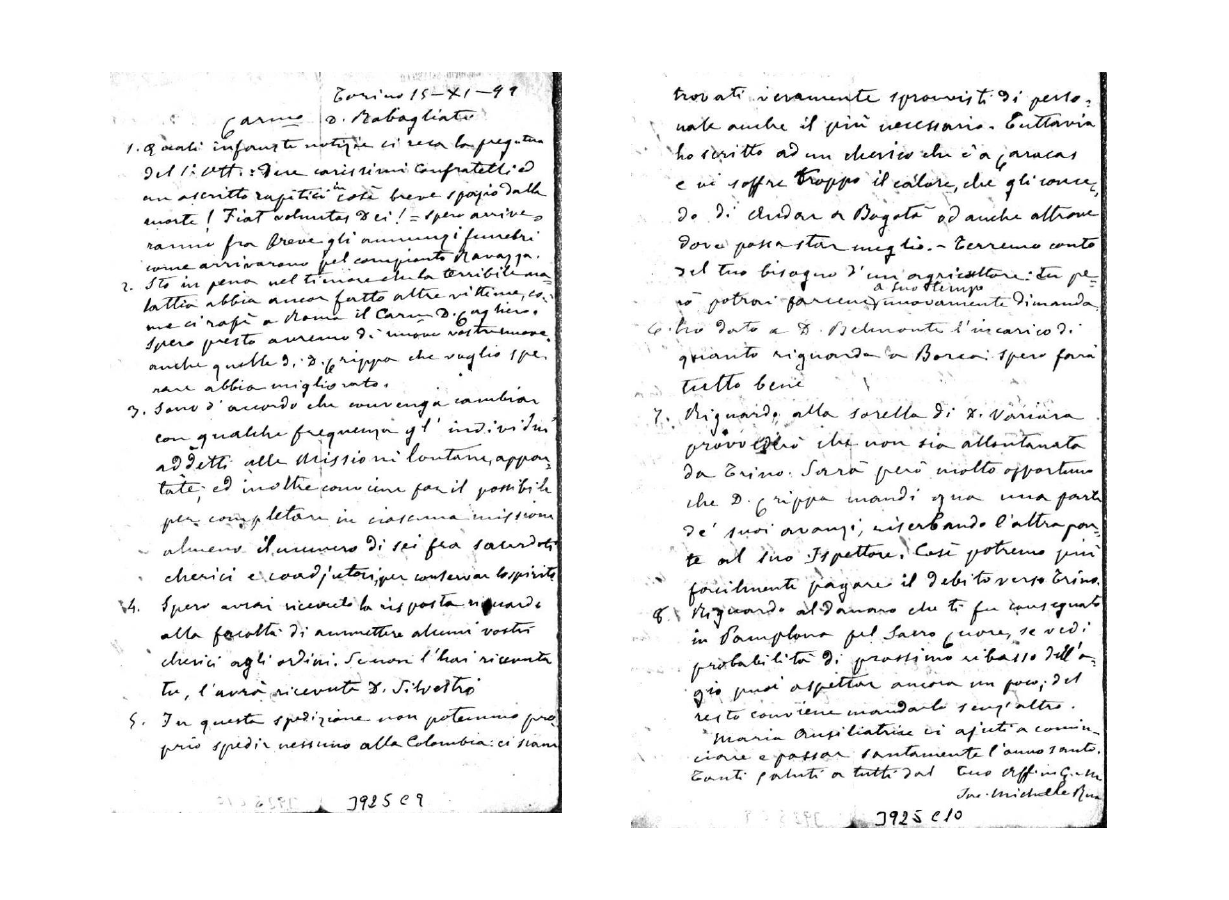 Torino 15-XI-99
Carmo D. Rabagliati
1. Quali infauste notizie ci reca la pregiatma
del 1° Ott.: Due carissimi Confratelli ed
un ascritto rapitici in così breve spazio dalla
morte! Fiat voluntas Dei! = spero arrive-
ranno fra breve gli annunzi funebri
come arrivarono pel compianto Ravazza.
2. Sto in pena nel timore che la terribile ma-
lattia abbia ancor fatto altre vittime, co-
me ci rapì a Roma il Carmo D. Cagliero.
Spero presto avremo di nuovo vostre nuove
anche quelle di D. Grippa che voglio spe-
rare abbia migliorato.
3. Sono d'accordo che convenga cambiar
con qualche frequenza gl' individui
addetti alle Missioni lontane, appar-
tate; ed inoltre conviene far il possibile
per completare in ciascuna missione
almeno il numero di sei fra sacerdoti
cherici e coadjutori, per conservar lo spirito
4. Spero avrai ricevuto la risposta riguardo
alla facoltà di ammettere alcuni vostri
cherici agli ordini. Se non l'hai ricevuta
tu, l'avrà ricevuta D. Silvestro
5. In questa spedizione non potemmo pro-
prio spedir nessuno alla Colombia: ci siam
J925 C 9
trovati veramente sprovvisti di perso-
nale anche il più necessario. Tuttavia
ho scritto ad un cherico che è a Caracas
e vi soffre troppo il calore, che gli conce-
do di andar a Bogotà od anche altrove
dove possa star meglio. - Terremo conto
del tuo bisogno d'un agricoltore: tu pe-
a suo tempo
rò potrai farcene nuovamente dimanda.
6. Ho dato a D. Belmonte l'incarico di
quanto riguarda a Borea: spero farà
tutto bene
7. Riguardo alla sorella di D. Variara
provvederò che non sia allontanata
da Trino. Sarà però molto opportuno
che D. Grippa mandi qua una parte
de' suoi avanzi, riserbando l'altra par-
te al suo Ispettore. Così potremo più
facilmente pagare il debito verso Trino.
8. Riguardo al danaro che ti fu consegnato
in Pamplona pel Sacro Cuore, se vedi
probabilità di prossimo ribasso dell'a-
gio puoi aspettar ancora un poco; del
resto conviene mandarlo senz'altro.
Maria Ausiliatrice ci ajuti a comin-
ciare e passar santamente l'anno santo.
Tanti saluti a tutti dal Tuo Affmo in G. e M.
Sac. Michele Rua
J925 C10